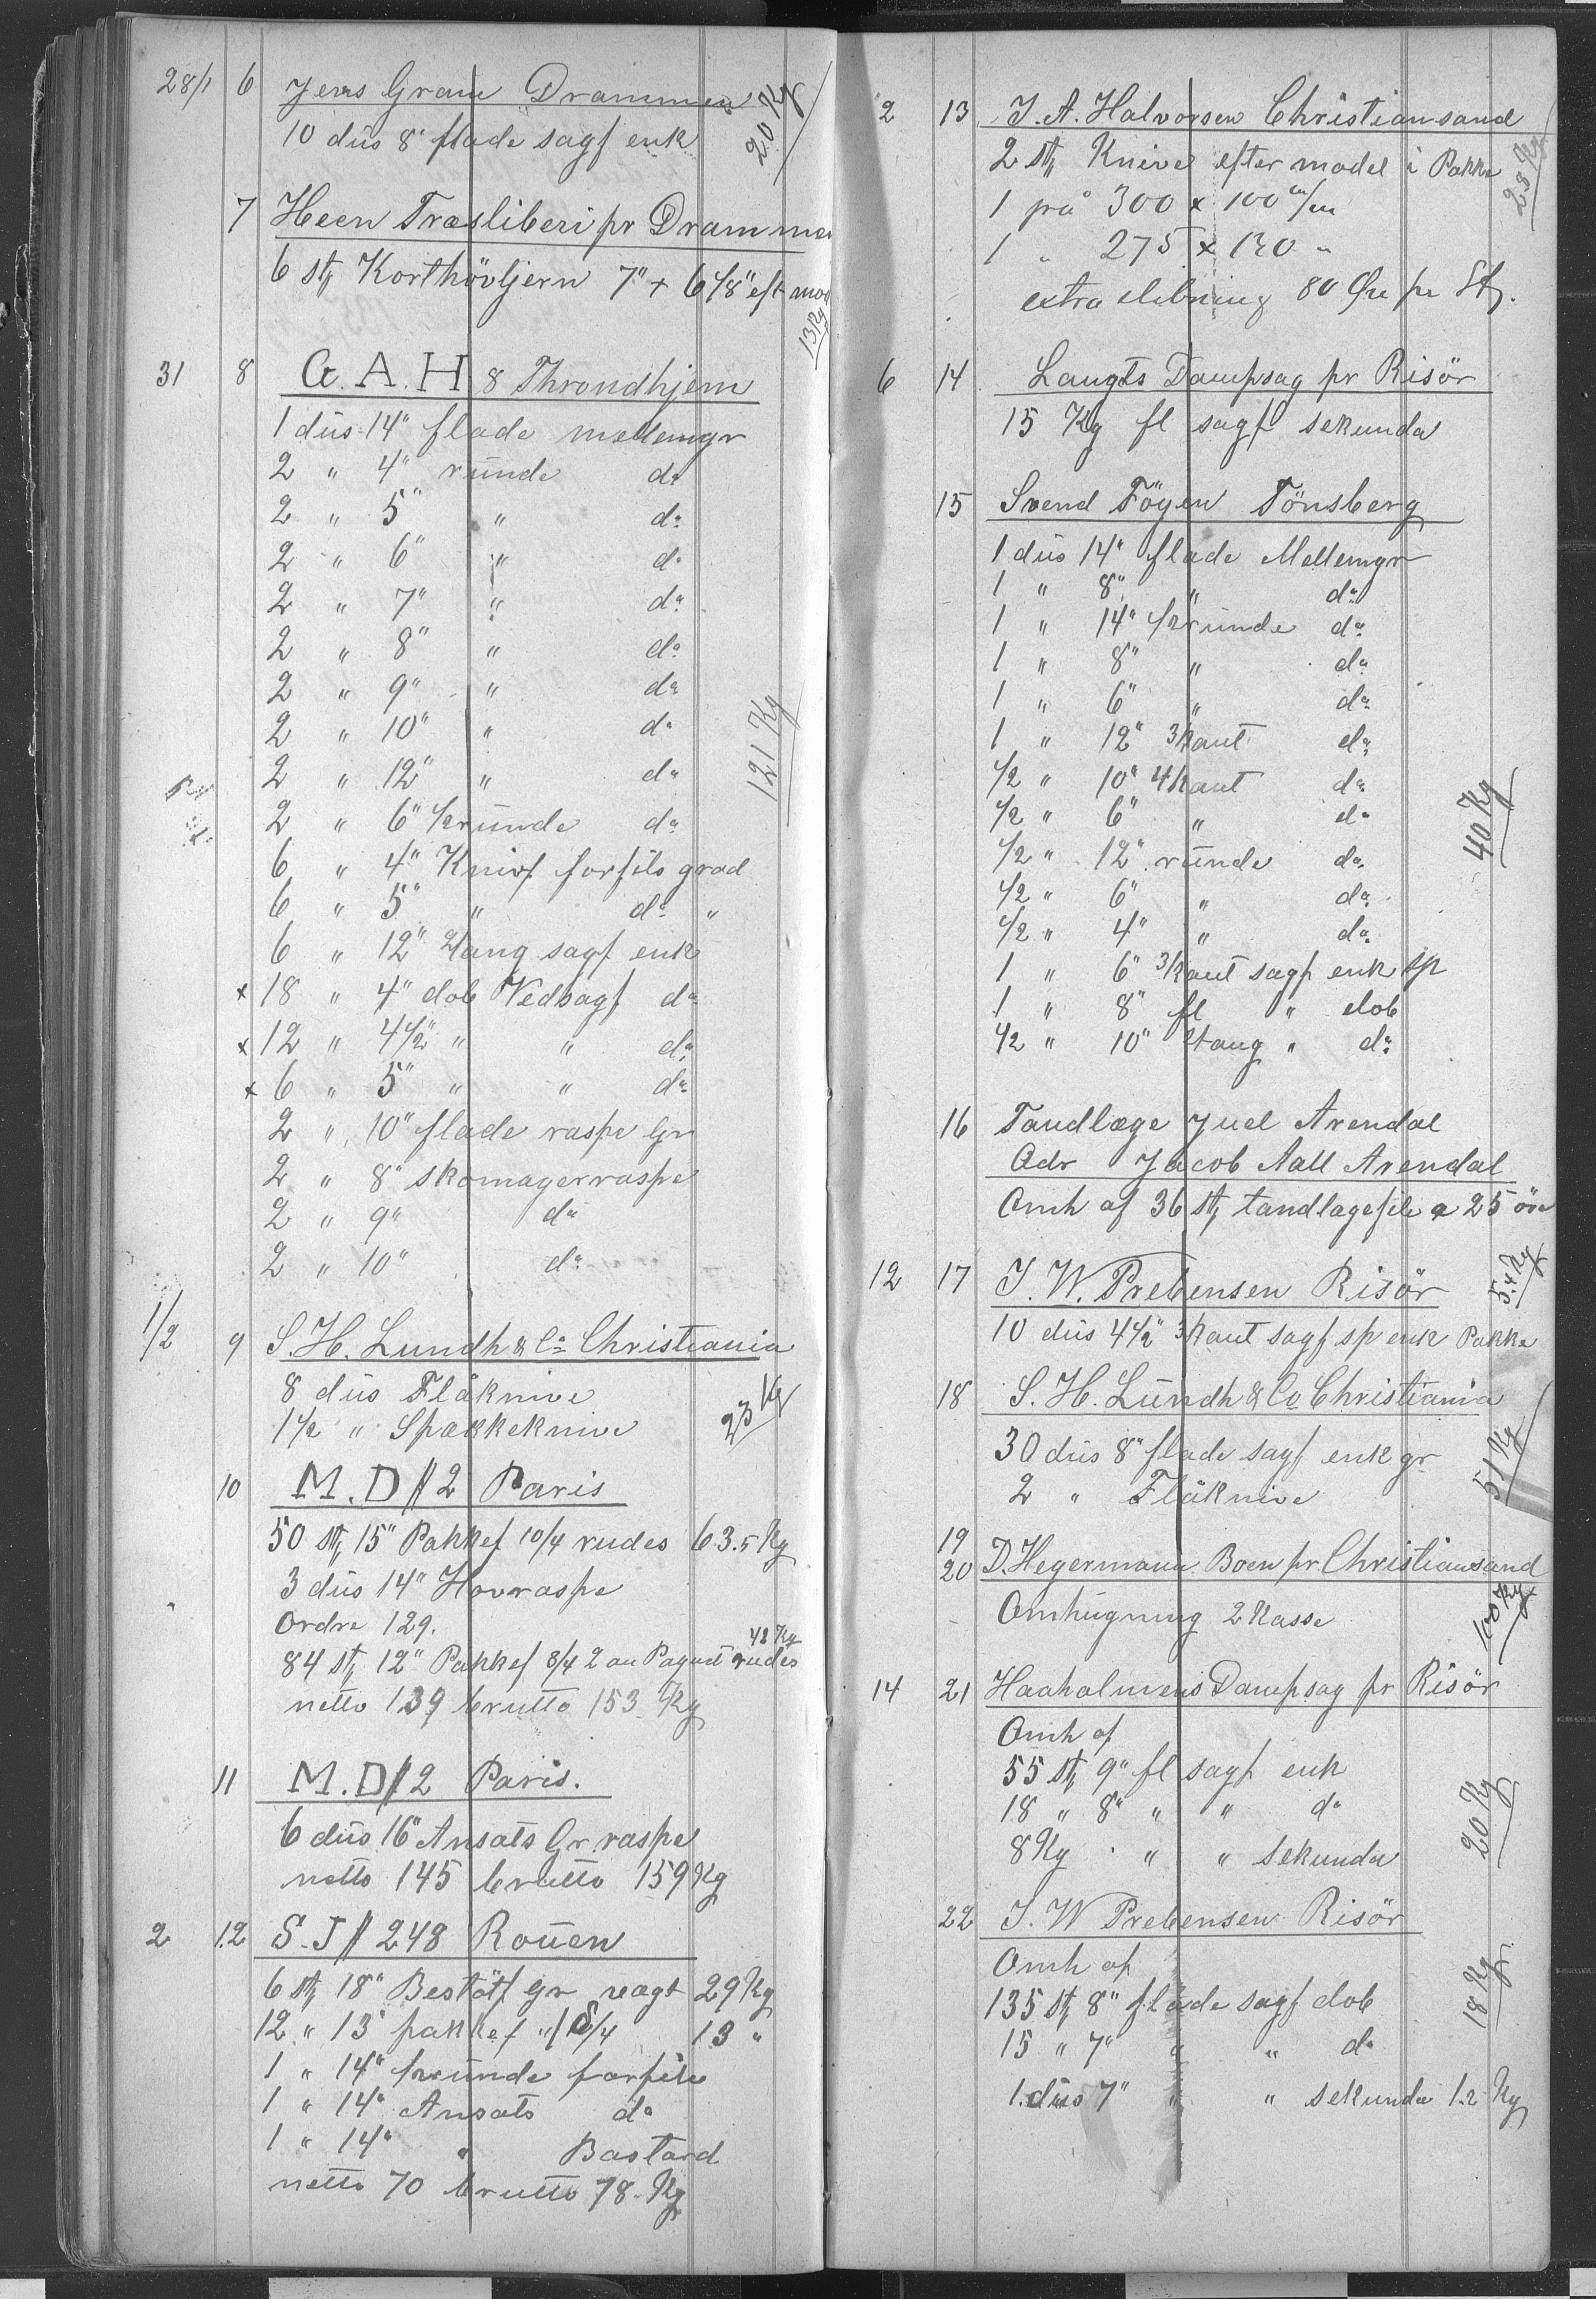 28/1 6 Jens Gram Drammen
10 düs 8" flade sagf enk 20 Kg
7 Heen Træsliberi pr Drammen
6 stk Korthövljern 7" + 6 1/8" eft mod
13 Kg
31 8 G. A. H 8 Throndhjem
1 düs 14" flade mellemgr
2 " 4" runde do
2 " 5" " do
2 " 6" " do
2 " 7" " do
2 " 8" " do
2 " 9" " do
2 " 10" " do
2 " 12" " do 121 Kg
2 " 6" 1/2runde do
6 " 4" Knivf forfils grad
6 " 5" " do "
6 " 12" Stang sagf enk
x 18 " 4" dob Vedsagf do
x 12 " 4 1/2" " " do
x 6 " 5" " " do
2 " 10" flade raspe Gr
2 " 8" skomagerraspe
2 " 9" do
2 " 10" do
1/2 9 S. H. Lundh & Co Christiania
8 düs Fläknive
1 1/2 " Spækkeknive 23 Kg
10 M. D // 2 Paris
50 stk 15" Pakkef 10/4 rudes 63.5 Kg
3 düs 14" Hovraspe
Ordre 129.
48 Kg
84 stk 12" Pakkef 8/4 2 au Paquet rudes
netto 139 brutto 153 Kg
11 M. D // 2 Paris.
6 düs 16" Ansats Gr. raspe
netto 145 brutto 159 Kg
2 12 S. J // 248 Rouen
6 stk 18" Bestötf gr vægt 29 Kg
12 " 13" pakkef " 8/4 13 "
1 " 14" 1/2runde forfile
1 " 14" Ansats do
1 " 14" " Bastard
netto 70 brutto 78 Kg
2 13 J. A. Halvorsen Christiansand
2 stk Knive efter model i Pakke
28 Kg
1 på 300 x 100 m/m
1 " 275 x 130 "
extra slibning 80 Öre pr Stk.
6 14 Langts Dampsag pr Risör
15 Kg fl sagf sekunda
15 Svend Föyen Tönsberg
1 düs 14" flade Mellemgr
1 " 8" " do
1 " 14" 1/2runde do
1 " 8" " do
1 " 6" " do
1 " 12" 3kant do
1/2 " 10" 4kant do
1/2 " 6" " do 40 Kg
1/2 " 12" runde do
1/2 " 6" " do
1/2 " 4" " do
1 " 6" 3kant sagf enk sp
1 " 8" fl " dob
1/2 " 10" Stang " do
16 Tandlæge Juel Arendal
Adr Jacob Aall Arendal
Omh af 36 stk tandlagefile a 25 öre
12 17 J. W. Prebensen Risör 5.4 Kg
10 düs 4 1/2" 3kant sagf sp enk Pakke
18 S. H. Lundh & Co Christiania
30 düs 8" flade sagf enk gr 51 Kg
2 " Fläknive
19
20 D. Hegermann Boen pr Christiansand
Omhugning 2 Kasse 100 Kg
14 21 Haaholmens Dampsag pr Risör
Omh af
55 stk 9" fl sagf enk
18 " 8" " " do 20 Kg
8 Kg " " sekunda
22 J. W Prebensen Risör
Omh af
135 stk 8" flade sagf dob 18 Kg
15 " 7" " " do
1 düs 7" " " sekunda 1.2 Kg